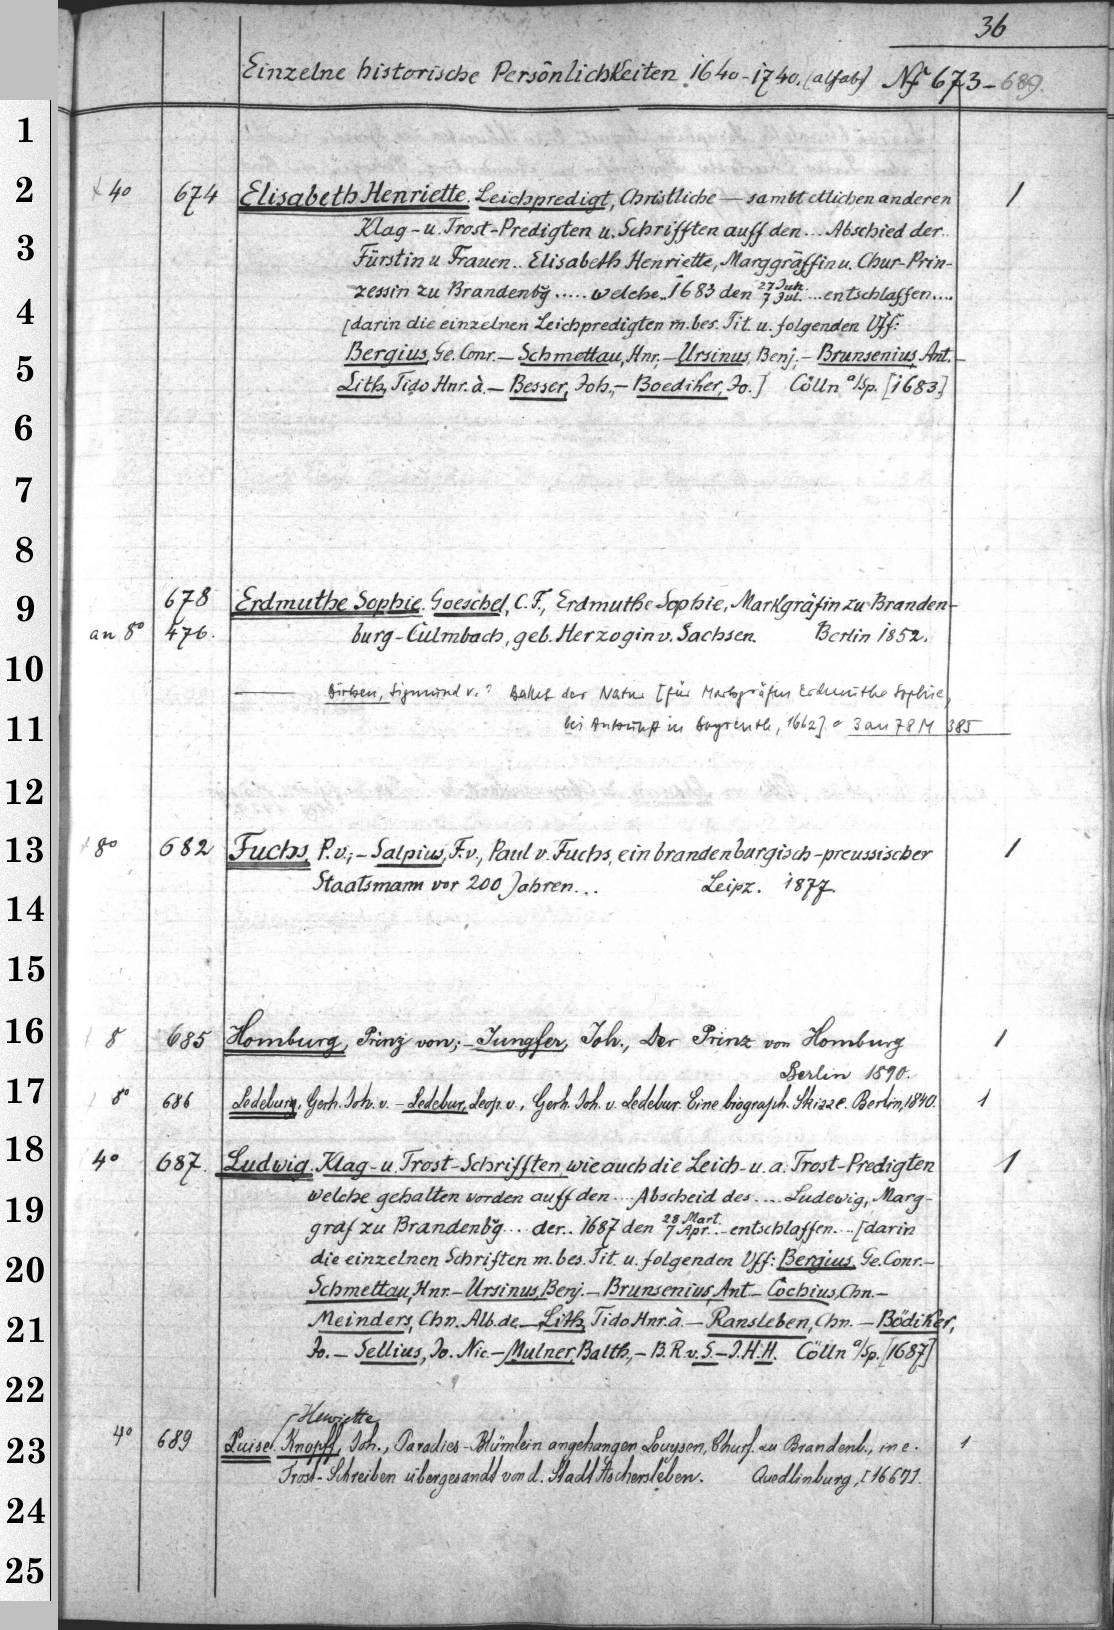 36
Einzelne historische Persönlichkeiten 1640-1740. (alfab) No 673-689.
1
2
3
4
5
6
7
8
9
10
11
12
13
14
15
16
17
18
19
20
21
22
23
24
25
40 674 Elisabeth Henriette. Leichpredigt, Christliche — sambt etlichen anderen 1
Klag- u. Trost-Predigten u. Schrifften auff den ... Abschied der..
Fürstin u Frauen.. Elisabeth Henriette, Marggräffin u. Chur-Prin-
zessin zu Brandenb'g ..... welche.. 1683 den 27 Jun. / 7 Jul. ... entschlaffen....
[darin die einzelnen Leichpredigten m. bes. Tit. u. folgenden Vff:
Bergius, Ge. Conr. — Schmettau, Hnr, — Ursinus, Benj, — Brunsenius, Ant. —
Lith, Tido Hnr. à — Besser, Joh, — Boediker, Jo.] Cölln a/Sp. [1683]
678 Erdmuthe Sophie. Goeschel, C. F., Erdmuthe Sophie, Markgräfin zu Branden-
an 8° 476. burg-Culmbach, geb. Herzogin v. Sachsen. Berlin 1852.
— Birken, Sigmund v.: Ballet der Natur [für Markgräfin Erdmuthe Sophie,
bei Ankunft in Bayreuth, 1662] 3 an 78 M 385
80 682 Fuchs, P. v.; — Salpius, F. v., Paul v. Fuchs, ein brandenburgisch-preussischer 1
Staatsmann vor 200 Jahren... Leipz. 1877.
8 685 Homburg, Prinz von; — Jungfer, Joh., Der Prinz von Homburg 1
Berlin 1890.
8° 686 Ledebury, Gerh. Joh. v. — Ledebur, Leop. v., Gerh. Joh. v. Ledebur. Eine biograph. Skizze. Berlin, 1840. 1
4° 687. Ludwig. Klag- u. Trost-Schrifften, wie auch die Leich- u. a. Trost-Predigten 1
welche gehalten worden auff den .... Abscheid des .... Ludewig, Marg-
graf zu Brandenb'g ... der.. 1687 den 28 Mart. / 7 Apr. .. entschlaffen.... [darin
die einzelnen Schriften m. bes. Tit. u. folgenden Vff: Bergius, Ge. Conr. —
Schmettau, Hnr. — Ursinus, Benj. — Brunsenius, Ant — Cochius, Chn. —
Meinders, Chn. Alb. de — Lith, Tido Hnr. à. — Ransleben, Chn. — Bödiker,
Jo. — Sellius, Jo. Nic — Mulner, Balth, — B. R. v. S — J. H. H. Cölln a/Sp. [1687]
Henriette
4° 689 Luise. Knopff, Joh., Paradies-Blümlein angehangen Louysen, Churf. zu Brandenb., in e. 1
Trost-Schreiben übergesandt von d. Stadt Aschersleben. Quedlinburg, [1667].